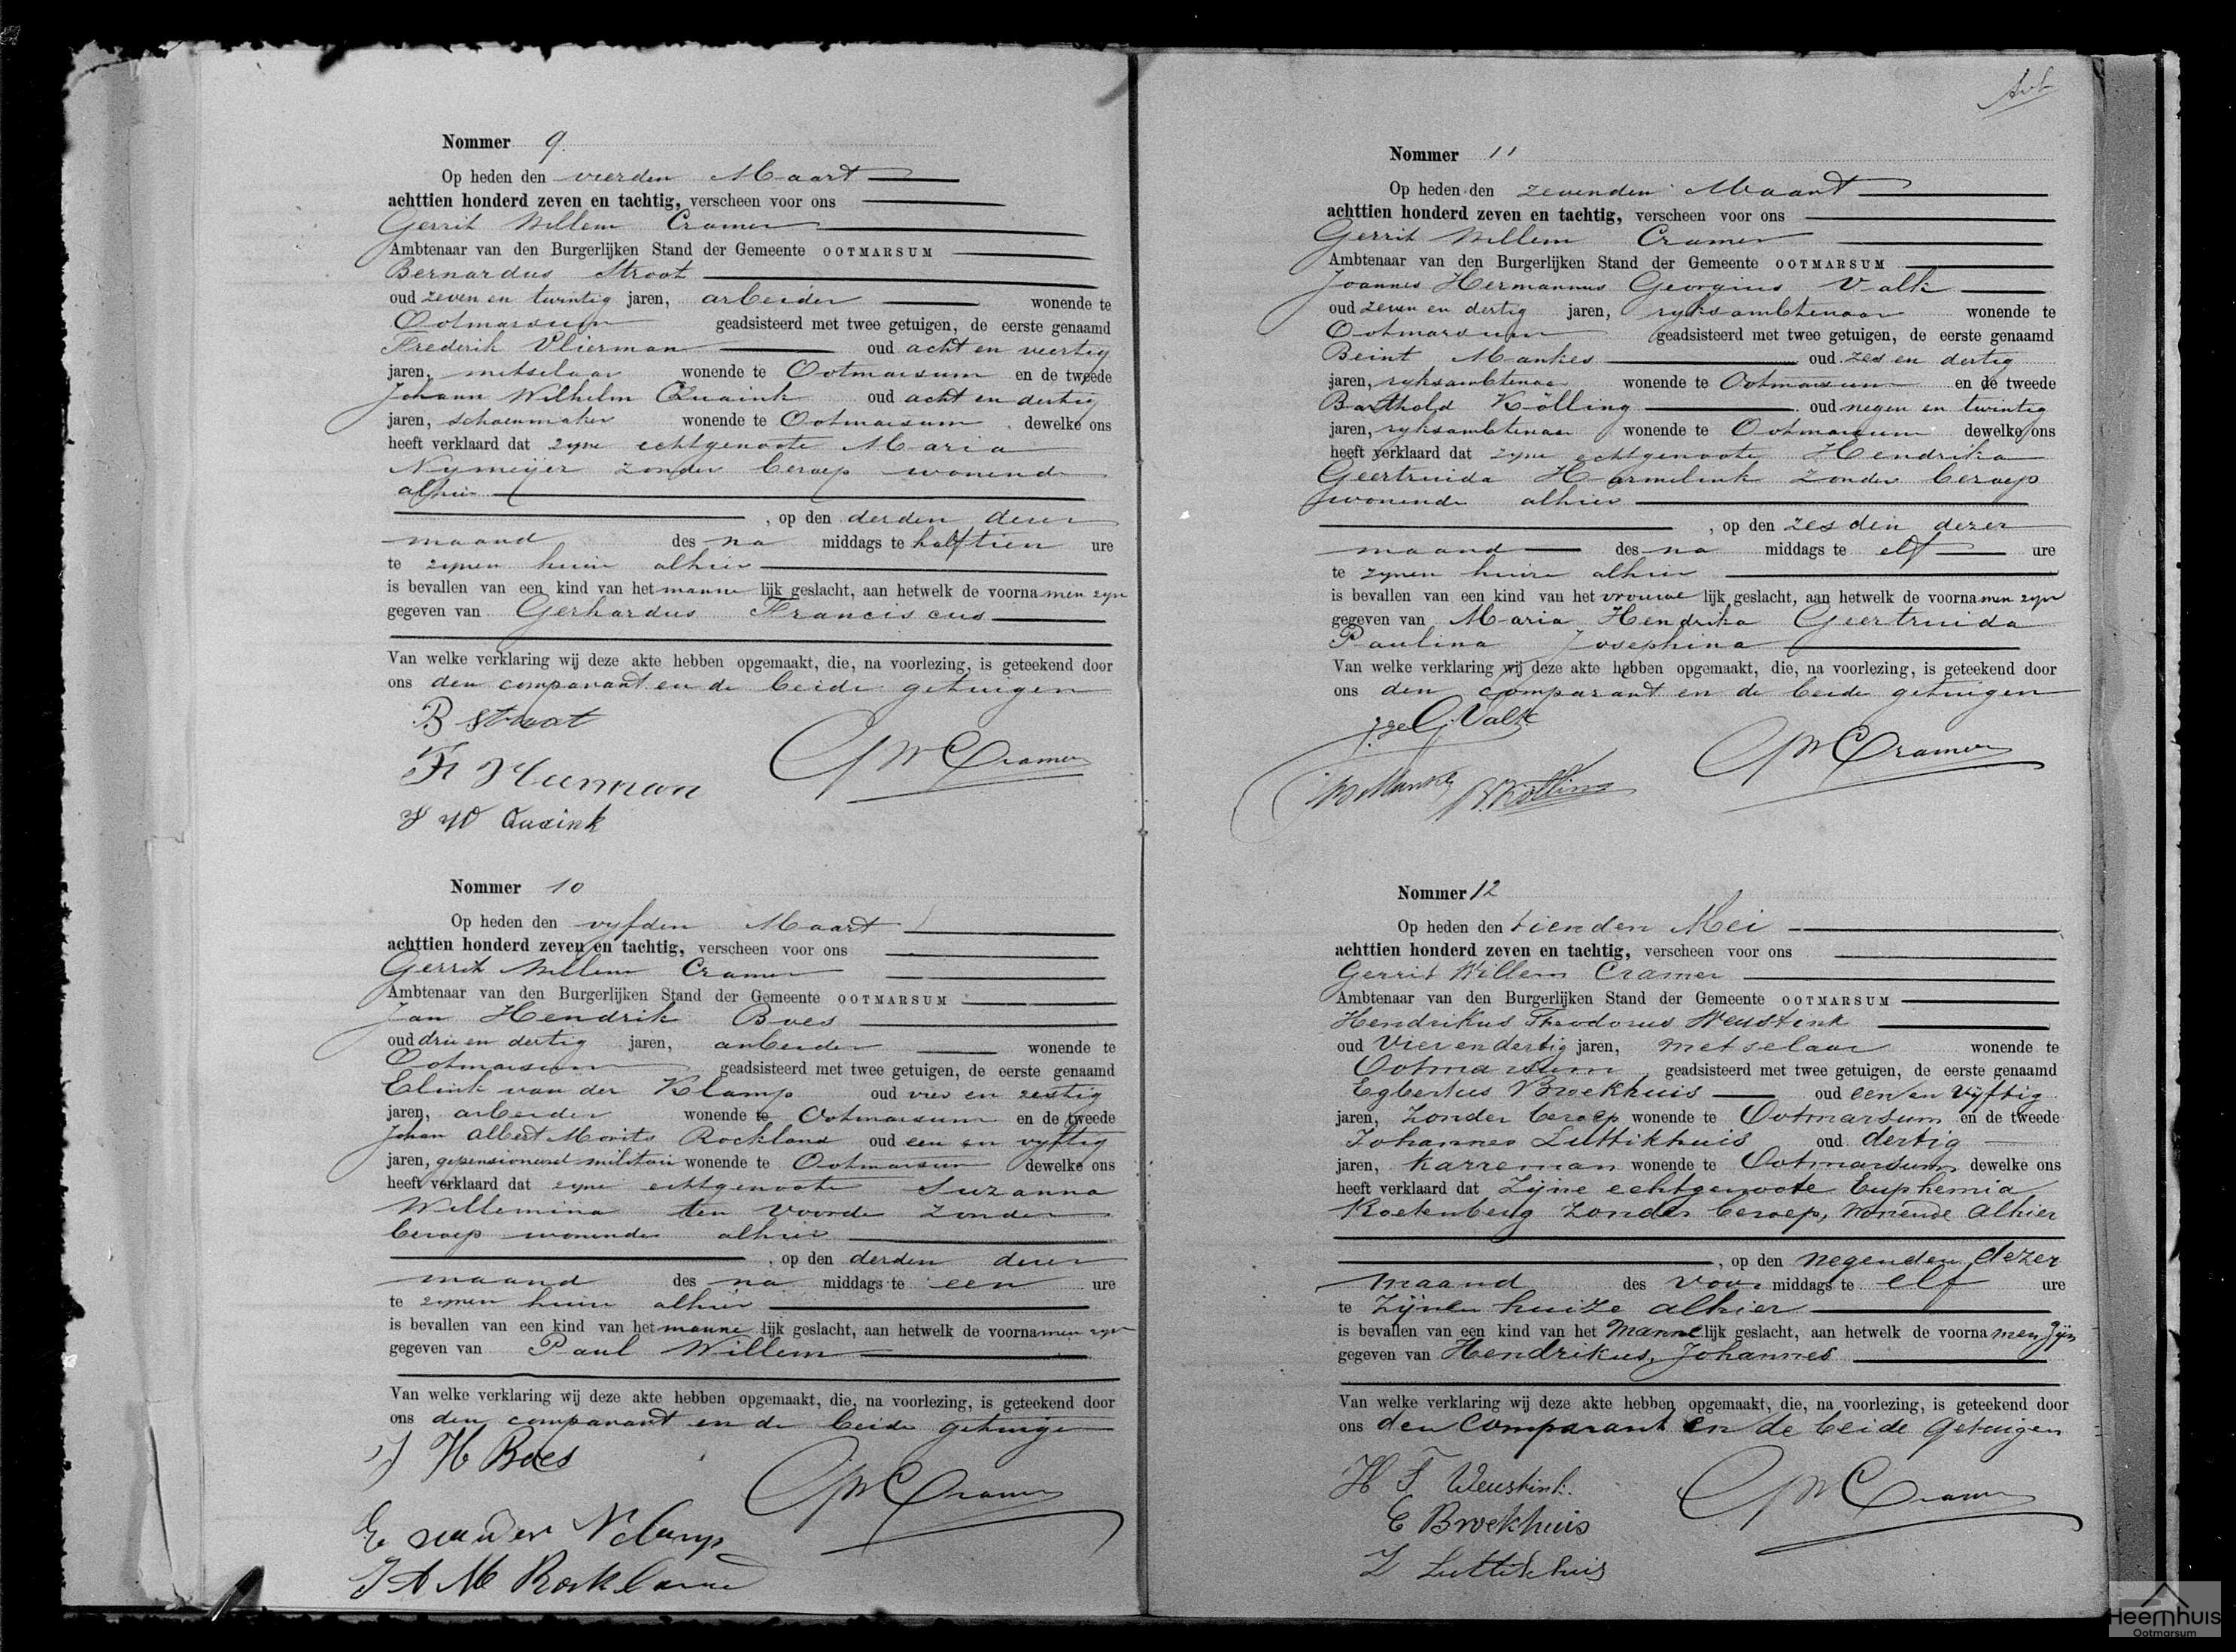 Nommer 9.
Op heden den vierden Maart
achttien honderd zeven en tachtig, verscheen voor ons
Gerrit Willem Cramer
Ambtenaar van den Burgerlijken Stand der Gemeente OOTMARSUM
Bernardus Stroot
oud zeven en twintig jaren, arbeider wonende te
Ootmarsum geadsisteerd met twee getuigen, de eerste genaamd
Frederik Vlierman oud acht en veertig
jaren, metselaar wonende te Ootmarsum en de tweede
Johann Wilhelm Quaink oud acht en dertig
jaren, schoenmaker wonende te Ootmarsum dewelke ons
heeft verklaard dat zijne echtgenoote Maria
Nijmeijer zonder beroep wonende
alhier
, op den derden dezer
maand des na middags te half tien ure
te zijnen huize alhier
is bevallen van een kind van het manne lijk geslacht, aan hetwelk de voorna men zijn
gegeven van Gerhardus Franciscus
Van welke verklaring wij deze akte hebben opgemaakt, die, na voorlezing, is geteekend door
ons den comparant en de beide getuigen
B Stroot
GW Cramer
J W Quaink
Nommer 10
Op heden den vijfden Maart
achttien honderd zeven en tachtig, verscheen voor ons
Gerrit Willem Cramer
Ambtenaar van den Burgerlijken Stand der Gemeente OOTMARSUM
Jan Hendrik Boes
oud drie en dertig jaren, arbeider wonende te
Ootmarsum geadsisteerd met twee getuigen, de eerste genaamd
Elink van der Klamp oud vier en zestig
jaren, arbeider wonende te Ootmarsum en de tweede
Johan Albert Morits Rockland oud een en vijftig
jaren, gepensioneerd militair wonende te Ootmarsum dewelke ons
heeft verklaard dat zijne echtgenoote Suzanna
Willemina ten Voorde zonder
beroep wonende alhier
, op den derden dezer
maand des na middags te een ure
te zijnen huize alhier
is bevallen van een kind van het manne lijk geslacht, aan hetwelk de voorna men zijn
gegeven van Paul Willem
Van welke verklaring wij deze akte hebben opgemaakt, die, na voorlezing, is geteekend door
ons den comparant en de beide getuige
J H Boes
GW Cramer
E van der Klamp
J A M Rockland
Nommer 11
Op heden den zevenden Maart
achttien honderd zeven en tachtig, verscheen voor ons
Gerrit Willem Cramer
Ambtenaar van den Burgerlijken Stand der Gemeente OOTMARSUM
Joannes Hermannus Georgius Valk
oud zeven en dertig jaren, rijksambtenaar wonende te
Ootmarsum geadsisteerd met twee getuigen, de eerste genaamd
Beint Mankes oud zes en dertig
jaren, rijksambtenaar wonende te Ootmarsum en de tweede
Barthold Kölling oud negen en twintig
jaren, rijksambtenaar wonende te Ootmarsum dewelke ons
heeft verklaard dat zijne echtgenoote Hendrika
Geertruida Harmelink zonder beroep
wonende alhier
, op den zesden dezer
maand des na middags te elf ure
te zijnen huize alhier
is bevallen van een kind van het vrouwe lijk geslacht, aan hetwelk de voorna men zijn
gegeven van Maria Hendrika Geertruida
Paulina Josephina
Van welke verklaring wij deze akte hebben opgemaakt, die, na voorlezing, is geteekend door
ons den comparant en de beide getuigen
J.H.G. Valk
GW Cramer
B Mankes B. Kölling
Nommer 12
Op heden den tienden Mei
achttien honderd zeven en tachtig, verscheen voor ons
Gerrit Willem Cramer
Ambtenaar van den Burgerlijken Stand der Gemeente OOTMARSUM
Hendrikus Theodorus Weustink
oud Vier en dertig jaren, metselaar wonende te
Ootmarsum geadsisteerd met twee getuigen, de eerste genaamd
Egbertus Broekhuis oud een en vijftig
jaren, zonder beroep wonende te Ootmarsum en de tweede
Johannes Luttikhuis oud dertig
jaren, karreman wonende te Ootmarsum dewelke ons
heeft verklaard dat Zijne echtgenoote Euphemia
Roetenberg zonder beroep, wonende alhier
, op den negenden dezer
maand des voor middags te elf ure
te Zijnen huize alhier
is bevallen van een kind van het Manne lijk geslacht, aan hetwelk de voorna men zijn
gegeven van Hendrikus, Johannes
Van welke verklaring wij deze akte hebben opgemaakt, die, na voorlezing, is geteekend door
ons den comparant en de beide getuigen
H T Weustink.
GW Cramer
E Broekhuis
Luttikhuis
Heemhuis
Ootmarsum